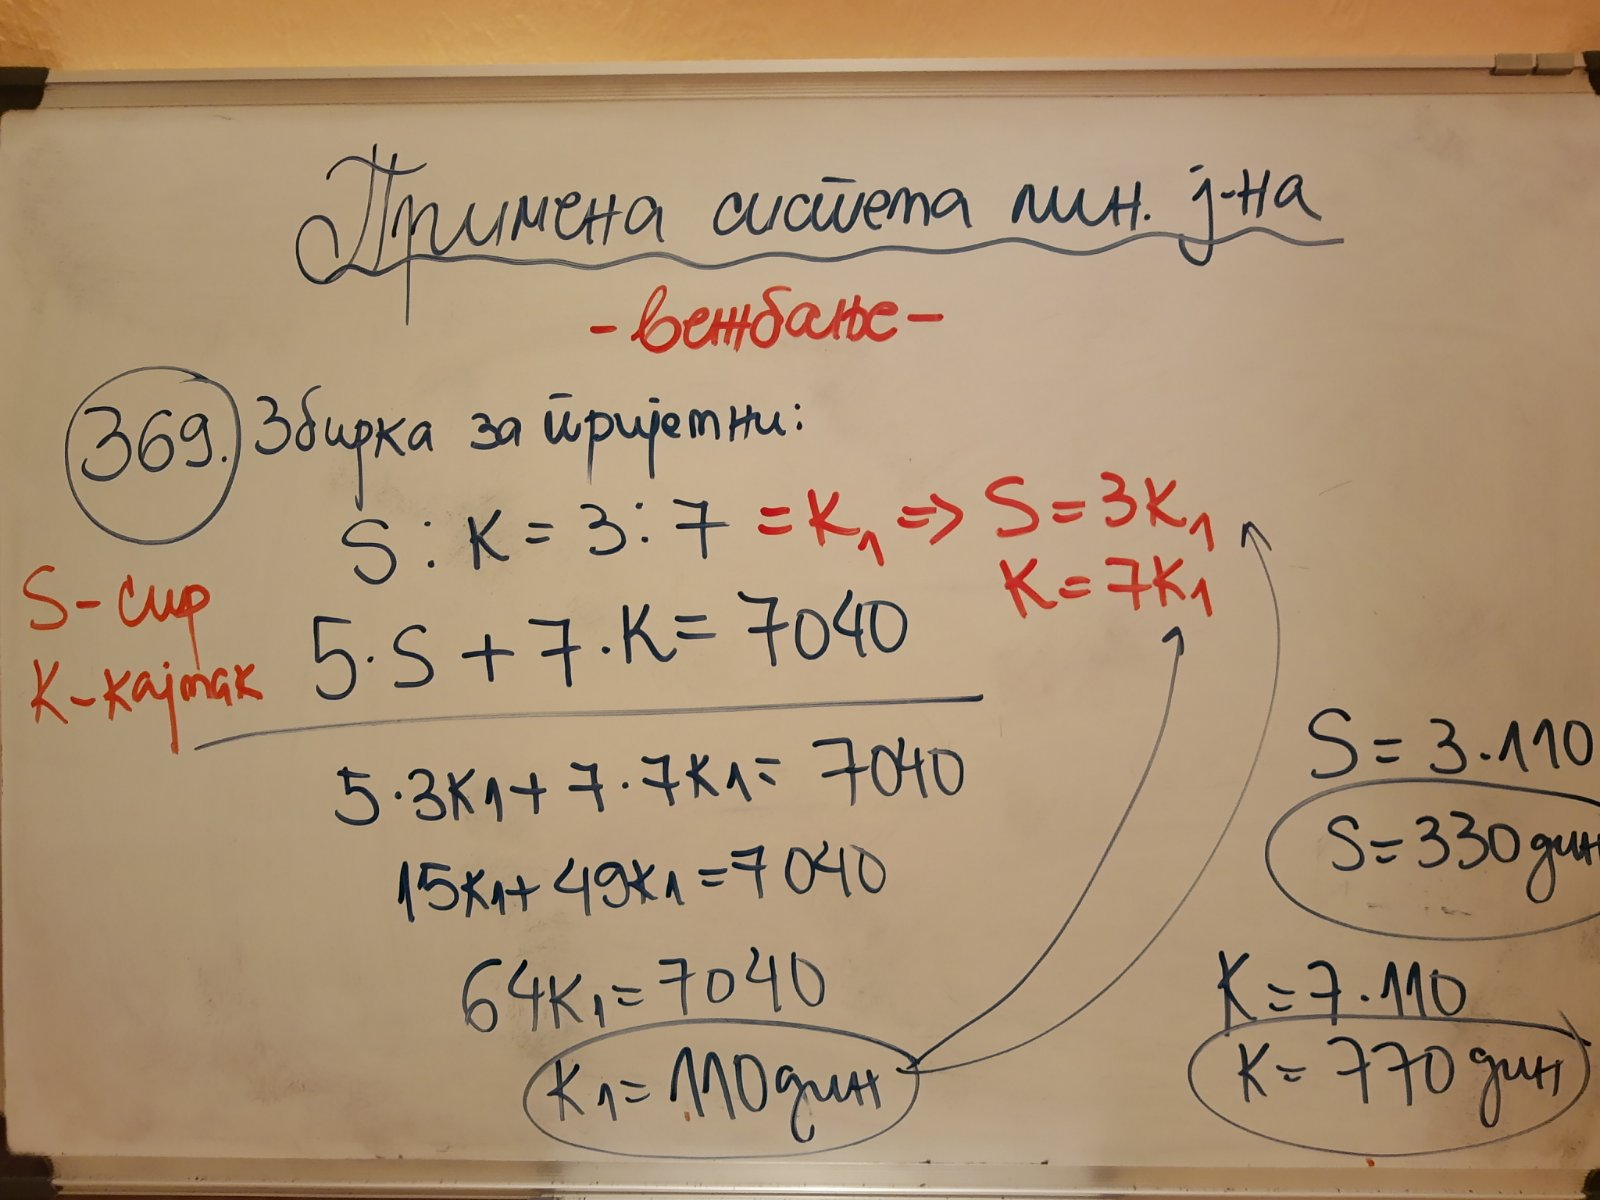 Примена система лин. ј-на
-вежбање-
369. Збирка за пријемни:
S : K = 3 : 7 = K₁ => S = 3K₁
K = 7K₁
S - сир
K - кајмак
5·S + 7·K = 7040
5·3K₁ + 7·7K₁ = 7040
15K₁ + 49K₁ = 7040
64K₁ = 7040
K₁ = 110 дин
S = 3·110
S = 330 дин
K = 7·110
K = 770 дин